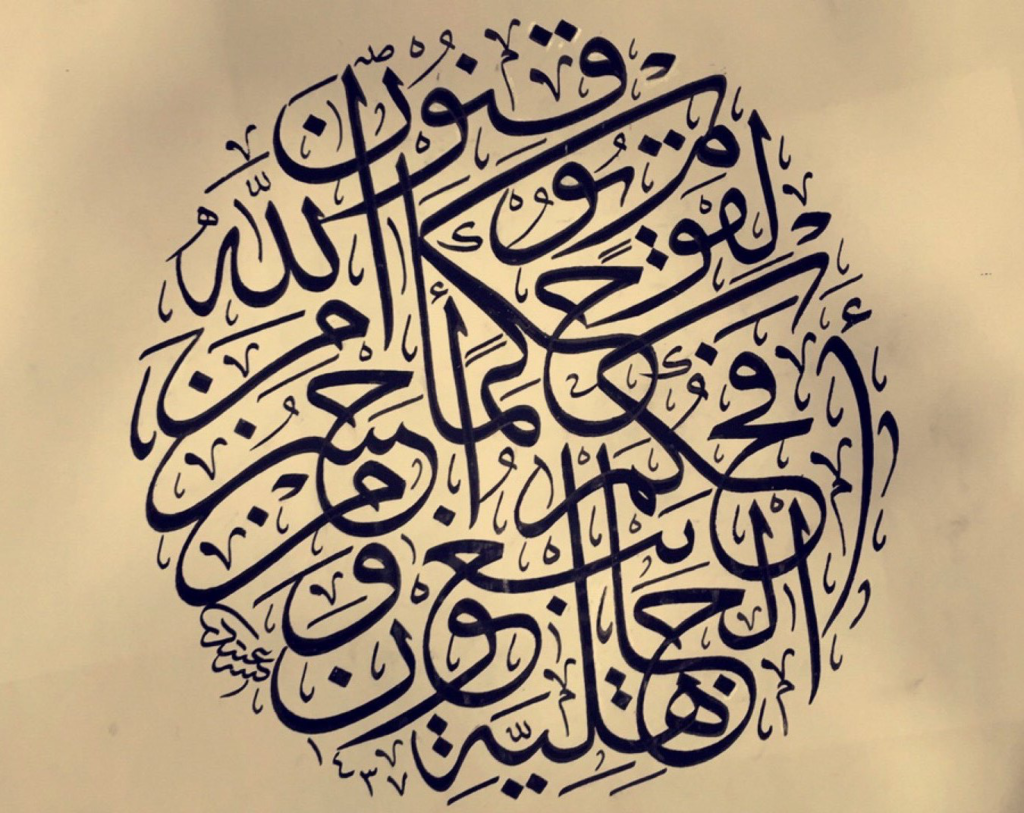 أَفَحُكْمَ الْجَاهِلِيَّةِ يَبْغُونَ وَمَنْ أَحْسَنُ مِنَ اللَّهِ حُكْمًا لِقَوْمٍ يُوقِنُونَ
١٤٣٧